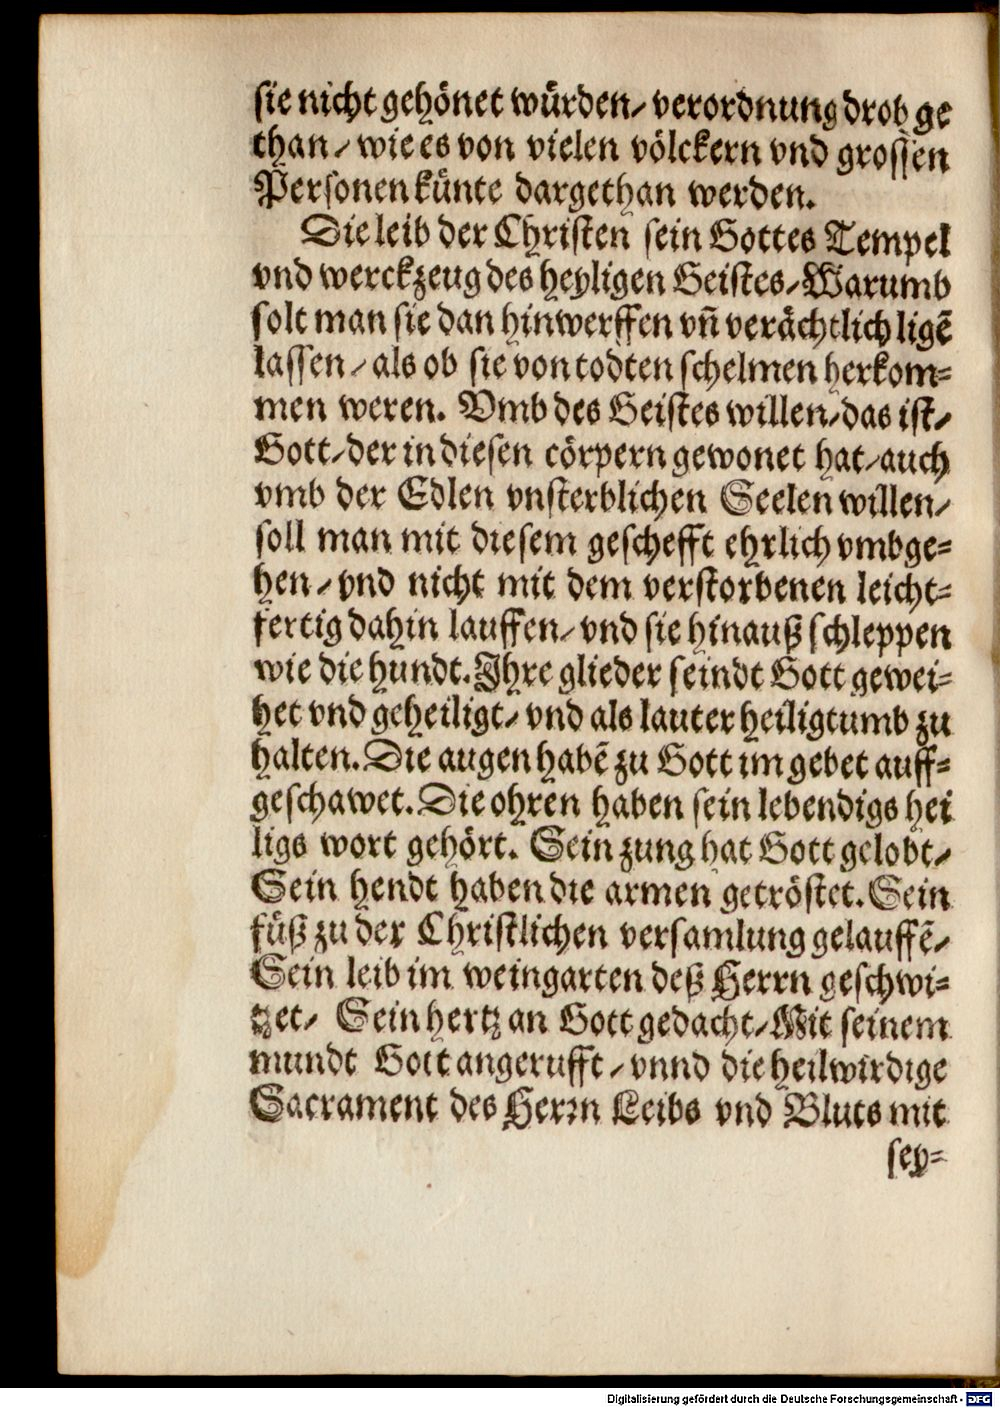 sie nicht gehönet würden / verordnung drob ge
than / wie es von vielen völckern vnd grossen
Personen künte dargethan werden.
Die leib der Christen sein Gottes Tempel
vnd werckzeug des heyligen Geistes / Warumb
solt man sie dan hinwerffen vñ verächtlich ligẽ
lassen / als ob sie von todten schelmen herkom=
men weren. Vmb des Geistes willen / das ist /
Gott / der in diesen cörpern gewonet hat / auch
vmb der Edlen vnsterblichen Seelen willen /
soll man mit diesem geschefft ehrlich vmbge=
hen / vnd nicht mit dem verstorbenen leicht=
fertig dahin lauffen / vnd sie hinauß schleppen
wie die hundt. Ihre glieder seindt Gott gewei=
het vnd geheiligt / vnd als lauter heiligtumb zu
halten. Die augen habẽ zu Gott im gebet auff=
geschawet. Die ohren haben sein lebendigs hei
ligs wort gehört. Sein zung hat Gott gelobt /
Sein hendt haben die armen getröstet. Sein
füß zu der Christlichen versamlung gelauffẽ /
Sein leib im weingarten deß Herrn geschwi=
tzet / Sein hertz an Gott gedacht / Mit seinem
mundt Gott angerufft / vnnd die heilwirdige
Sacrament des Herrn Leibs vnd Bluts mit
sey=
Digitalisierung gefördert durch die Deutsche Forschungsgemeinschaft - DFG